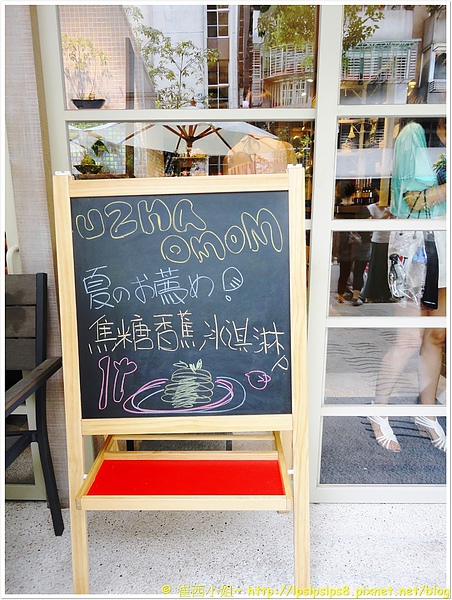 UZNA
OMOM
夏のお薦め!
焦糖香蕉冰淇淋
© 崔西小姐★ http://lpslpslps8.pixnet.net/blog